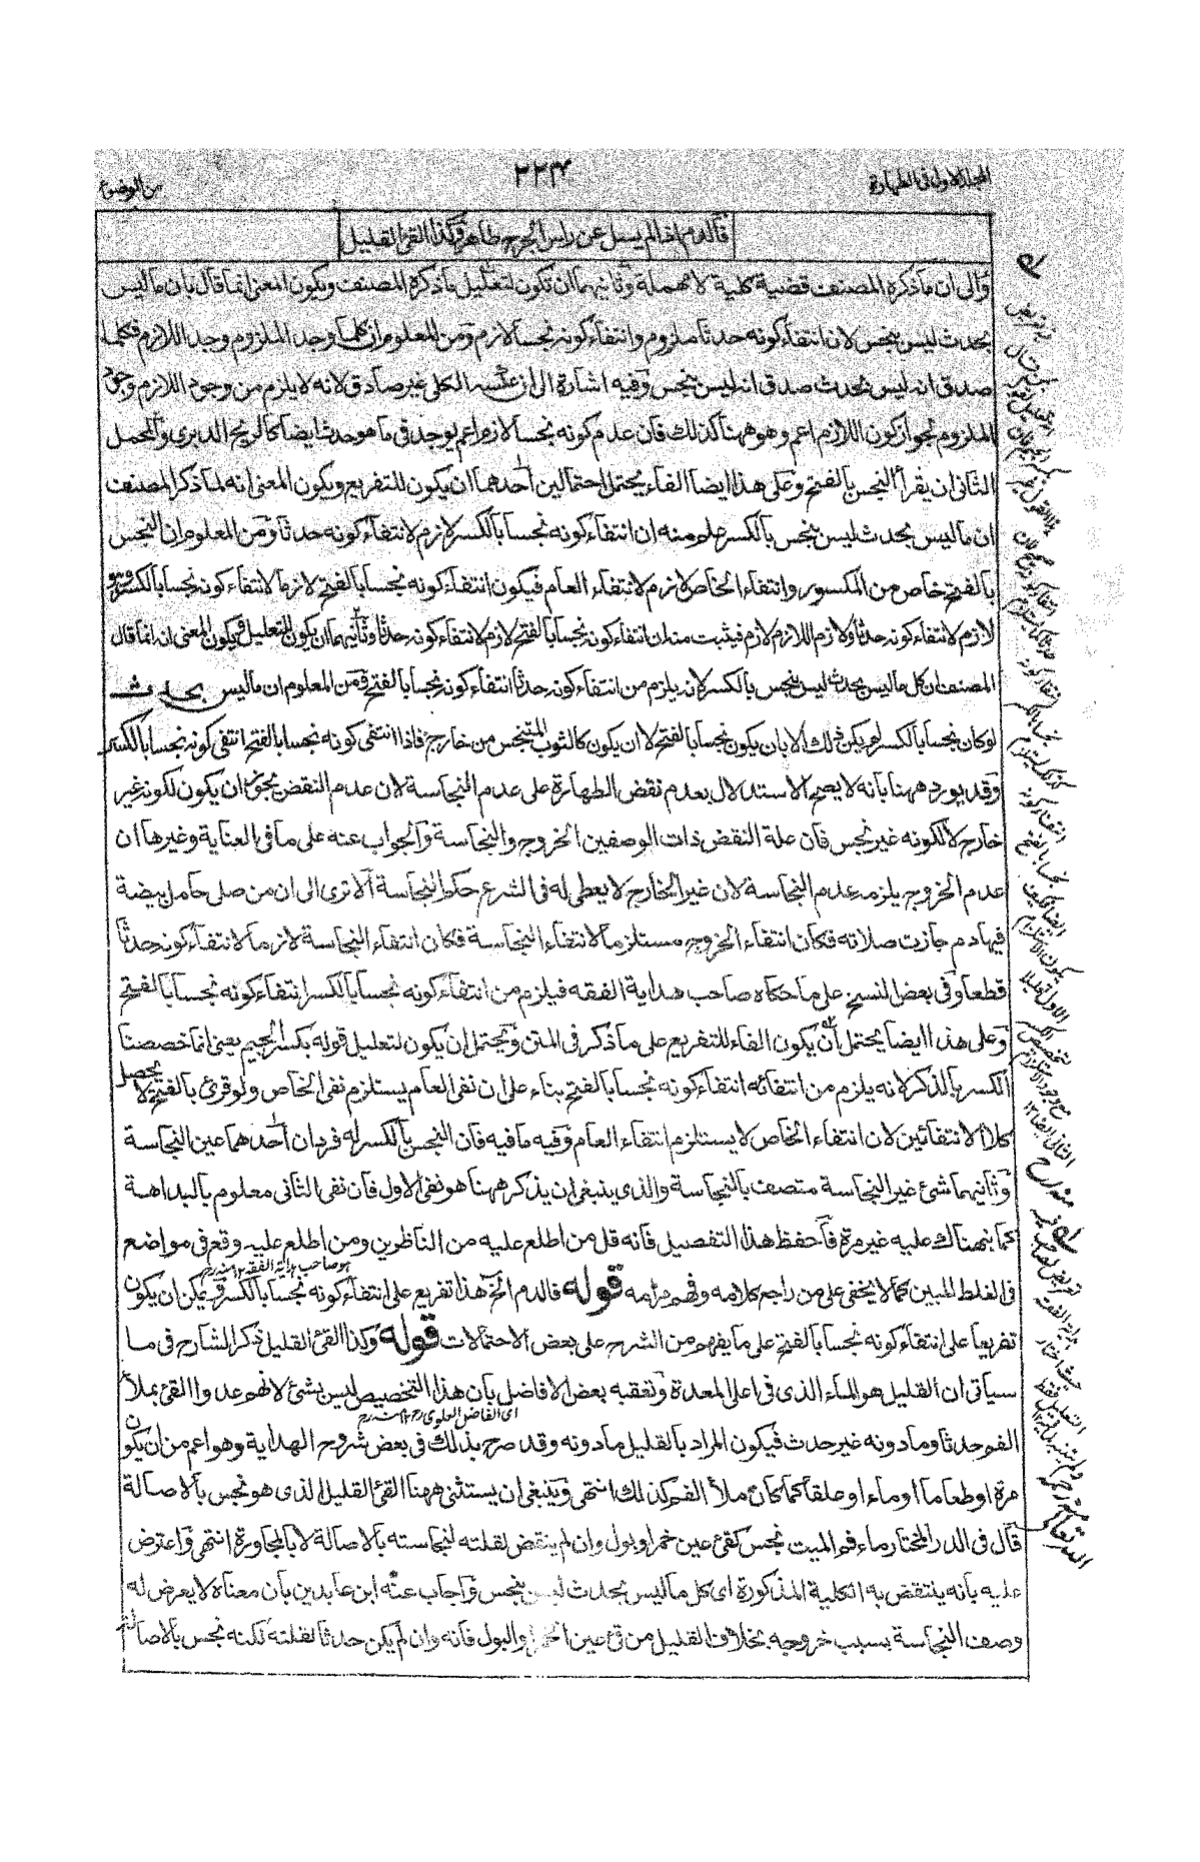 المجلد الاول فى الطهارة
٢٢٣
من الوضوء
فالدم اذا لم يسل عن راس الجرح طاهر وكذا القئ القليل
والى ان ما ذكره المصنف قضية كلية لا مهملة وثانيهما ان تكون لتعليل ما ذكره المصنف ويكون المعنى انما قال بان ما ليس
بحدث ليس بنجس لان انتفاء كونه حدثا ملزوم وانتفاء كونه نجسا لازم ومن المعلوم ان كلما وجد الملزوم وجد اللازم فكلما
صدق انه ليس بحدث صدق انه ليس بنجس وفيه اشارة الى ان عكسه الكلى غير صادق لانه لا يلزم من وجود اللازم وجود
الملزوم لجواز كون اللازم اعم وهو ههنا كذلك فان عدم كونه نجسا لازم اعم يوجد فى ما هو حدث ايضا كالريح الدبرى والمحمل
الثانى ان يقرأ النجس بالفتح وعلى هذا ايضا الفاء يحتمل احتمالين احدهما ان يكون للتفريع ويكون المعنى انه لما ذكر المصنف
ان ما ليس بحدث ليس بنجس بالكسر علم منه ان انتفاء كونه نجسا بالكسر لازم لانتفاء كونه حدثا ومن المعلوم ان النجس
بالفتح خاص من المكسور وانتفاء الخاص لازم لانتفاء العام فيكون انتفاء كونه نجسا بالفتح لازما لانتفاء كونه نجسا بالكسر وهو
لازم لانتفاء كونه حدثا ولازم اللازم لازم فيثبت منه ان انتفاء كونه نجسا بالفتح لازم لانتفاء كونه حدثا وثانيهما ان يكون للتعليل فيكون المعنى انه انما قال
المصنف ان كل ما ليس بحدث ليس بنجس بالكسر لانه يلزم من انتفاء كونه حدثا انتفاء كونه نجسا بالفتح ومن المعلوم ان ما ليس بحدث
لو كان نجسا بالكسر لم يكن ذلك الا بان يكون نجسا بالفتح لا ان يكون كالثوب المتنجس من خارج فاذا انتفى كونه نجسا بالفتح انتفى كونه نجسا بالكسر
وقد يورد ههنا بانه لا يصح الاستدلال بعدم نقض الطهارة على عدم النجاسة لان عدم النقض يجوز ان يكون لكونه غير
خارج لا لكونه غير نجس فان علة النقض ذات الوصفين الخروج والنجاسة والجواب عنه على ما فى العناية وغيرها ان
عدم الخروج يلزمه عدم النجاسة لان غير الخارج لا يعطى له فى الشرع حكم النجاسة الا ترى الى ان من صلى حامل بيضة
فيها دم جازت صلاته فكان انتفاء الخروج مستلزما لانتفاء النجاسة فكان انتفاء النجاسة لازما لانتفاء كونه حدثا
قطعا وفى بعض النسخ على ما حكاه صاحب هداية الفقه فيلزم من انتفاء كونه نجسا بالكسر انتفاء كونه نجسا بالفتح
وعلى هذا ايضا يحتمل ان يكون الفاء للتفريع على ما ذكر فى المتن ويحتمل ان يكون لتعليل قوله بكسر الجيم يعنى انما خصصنا
الكسر بالذكر لانه يلزم من انتفائه انتفاء كونه نجسا بالفتح بناء على ان نفى العام يستلزم نفى الخاص ولو قرئ بالفتح لا يحصل
كلا الانتفائين لان انتفاء الخاص لا يستلزم انتفاء العام وفيه ما فيه فان النجس بالكسر له فردان احدهما عين النجاسة
وثانيهما شئ غير النجاسة متصف بالنجاسة والذى ينبغى ان يذكر ههنا هو نفى الاول فان نفى الثانى معلوم بالبداهة
كما نبهناك عليه غير مرة فاحفظ هذا التفصيل فانه قل من اطلع عليه من الناظرين ومن اطلع عليه وقع فى مواضع
هو صاحب هداية الفقه ١٢ منه رح
فى الغلط المبين كما لا يخفى على من راجع كلامه وفهم مرامه قوله فالدم الخ هذا تفريع على انتفاء كونه نجسا بالكسر ويمكن ان يكون
تفريعا على انتفاء كونه نجسا بالفتح على ما يفهم من الشرح على بعض الاحتمالات قوله وكذا القئ القليل ذكر الشارح فى ما
سياتى ان القليل هو الماء الذى فى اعلى المعدة وتعقبه بعض الافاضل بان هذا التخصيص ليس بشئ لانهم عدوا القئ بملأ
اى الفاضل العلوى رح ١٢ منه رح
الفم حدثا وما دونه غير حدث فيكون المراد بالقليل ما دونه وقد صرح بذلك فى بعض شروح الهداية وهو اعم من ان يكون
مرة او طعاما او ماء او علقا كما كان ملأ الفم كذلك انتهى وينبغى ان يستثنى ههنا القئ القليل الذى هو نجس بالاصالة
قال فى الدر المختار ماء فم الميت نجس كقئ عين خمر او بول وان لم ينقض لقلته لنجاسته بالاصالة لا بالمجاورة انتهى واعترض
عليه بانه ينتقض به الكلية المذكورة اى كل ما ليس بحدث ليس بنجس واجاب عنه ابن عابدين بان معناه لا يعرض له
وصف النجاسة بسبب خروجه بخلاف القليل من قئ عين الخمر والبول فانه وان لم يكن حدثا لقلته لكنه نجس بالاصالة